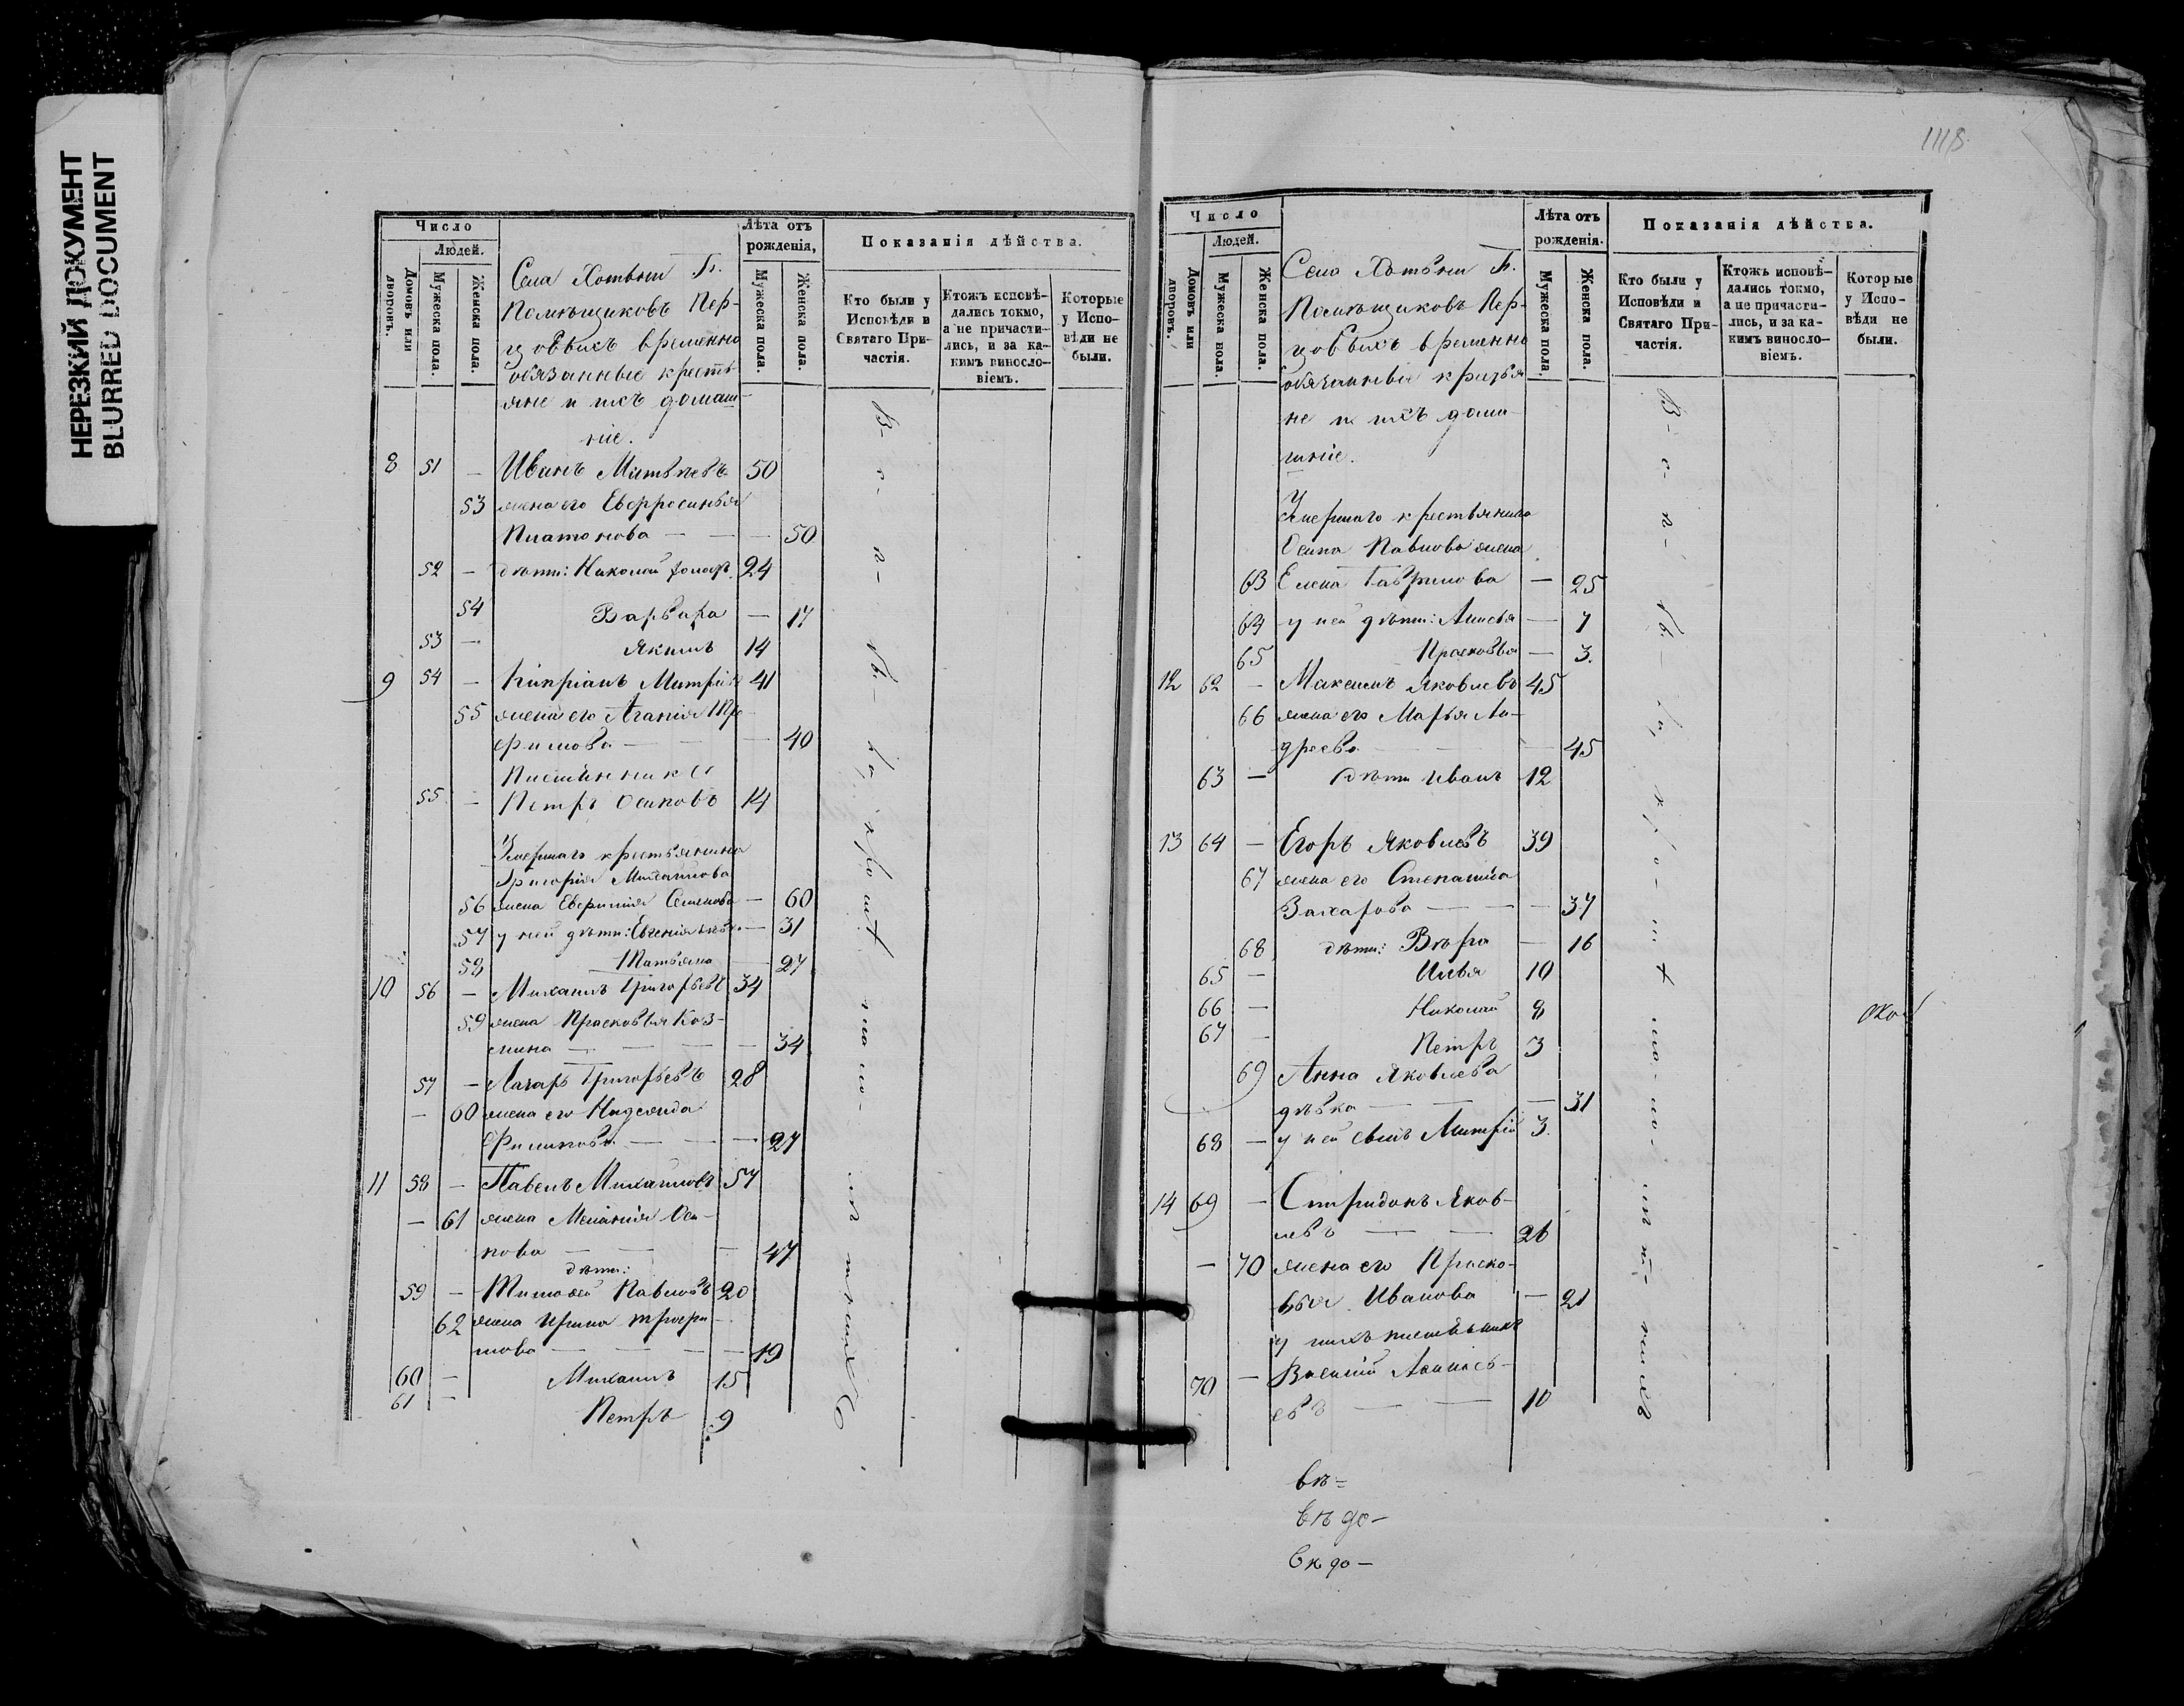 НЕРЕЗКИЙ ДОКУМЕНТ
BLURRED DOCUMENT
Число
Людей.
Домовъ или дворовъ.
Мужеска пола.
Женска пола.
Лѣта отъ рожденія,
Мужеска пола.
Женска пола.
Показанія дѣйства.
Кто были у Исповѣди и Святаго Причастія.
Ктожъ исповѣдались токмо, а не причастились, и за какимъ винословіемъ.
Которые у Исповѣди не были.
Села
Помѣщиковъ Пер-
цовыхъ временно
обязанные кресть
яне и ихъ домаш-
ніе.
8 51 — Иванъ 50
53 жена его Евфросинья
Платонова — — — 50
52 — дѣти: Николай 24
54 Варвара — 17
53 — Якимъ 14
9 54 — Кипріанъ 41
55 жена его Агапія Тро-
фимова — — — 40
55 — Петръ Осиповъ 14
Умершаго крестьянина
Григорія Михайлова
56 жена Евфимія Семенова — 60
57 у ней дѣти: Евгенія — 31
58 Татьяна — 27
10 56 — Михаилъ Григорьевъ 34
59 жена Прасковья Коз-
мина — — — — 34
57 — Лазарь Григорьевъ 28
— 60 жена его Надежда
Филипова — — — 27
11 58 — Павелъ Михайловъ 57
— 61 жена Меланія Оси-
пова — — — 47
дѣти:
59 — Тимофей Павловъ 20
62 жена Ирина Трофи-
мова — — — — 19
60 — Михаилъ 15
61 — Петръ 9
1118
Число
Людей.
Домовъ или дворовъ.
Мужеска пола.
Женска пола.
Лѣта отъ рожденія.
Мужеска пола.
Женска пола.
Показанія дѣйства.
Кто были у Исповѣди и Святаго Причастія.
Ктожъ исповѣдались токмо, а не причастились, и за какимъ винословіемъ.
Которые у Исповѣди не были.
Село
Помѣщиковъ Пер-
цовыхъ временно
обязанные крестья
не и ихъ дома-
шніе.
Умершаго крестьянина
Осипа Павлова жена
63 Елена Гаврилова — 25
64 у ней дѣти: — 7
65 Прасковья — 3.
12 62 — Максимъ Яковлевъ 45
66 жена его Марья Ан-
дреева — — — 45
63 — дѣти Иванъ 12
13 64 — Егоръ Яковлевъ 39
67 жена его Степанида
Захарова — — — 37
68 дѣти: Вѣра — 16
65 — Илья 10
66 — Николай 8
67 — Петръ 3
69 Анна Яковлева
дѣвка — — — 31
68 — у ней сынъ Митрій 3.
14 69 — Спиридонъ Яков-
левъ — — 26
— 70 жена его Праско-
вья Иванова — 21
у нихъ племянникъ
70 — Василій
евъ — — 10
вѣ=
вѣдо-
вѣдо-